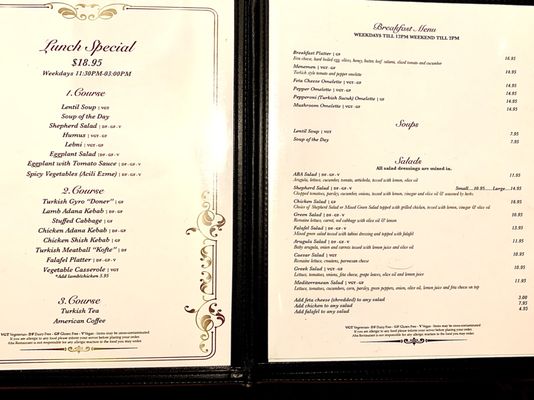 Lunch Special
$18.95
Weekdays 11:30PM-03:00PM
1.Course
Lentil Soup | VGT
Soup of the Day
Shepherd Salad | DF-GF-V
Humus | VGT-GF
Lebni | VGT-GF
Eggplant Salad | DF-GF-V
Eggplant with Tomato Sauce | DF-GF-V
Spicy Vegetables (Acili Ezme) | DF-GF-V
2.Course
Turkish Gyro "Doner" | GF
Lamb Adana Kebab | DF-GF
Stuffed Cabbage | GF
Chicken Adana Kebab | DF-GF
Chicken Shish Kebab | GF
Turkish Meatball "Kofte" | DF
Falafel Platter | DF-GF-V
Vegetable Casserole | VGT
*Add lamb/chicken 5.95
3.Course
Turkish Tea
American Coffee
VGT Vegetarian - DF Dairy Free - GF Gluten Free - V Vegan - Items may be cross-contaminated
If you are allergic to any food please inform your server before placing your order.
Aba Restaurant is not responsible for any allergic reaction to the food you may order.
Breakfast Menu
WEEKDAYS TILL 12PM WEEKEND TILL 2PM
Breakfast Platter | GF 16.95
Feta cheese, hard boiled egg, olives, honey, butter, beef salami, sliced tomato and cucumber
Menemen | VGT-GF 14.95
Turkish style tomato and pepper omelette
Feta Cheese Omelette | VGT-GF 14.95
Pepper Omelette | VGT-GF 14.95
Pepperoni (Turkish Sucuk) Omelette | GF 14.95
Mushroom Omelette | VGT-GF 14.95
Soups
Lentil Soup | VGT 7.95
Soup of the Day 7.95
Salads
All salad dressings are mixed in.
ABA Salad | DF-GF-V 11.95
Arugula, lettuce, cucumber, tomato, artichoke, tossed with lemon, olive oil
Shepherd Salad | DF-GF-V Small....10.95......Large....14.95
Chopped tomatoes, parsley, cucumber, onions, tossed with lemon, vinegar and olive oil & seasoned by herbs
Chicken Salad | GF 16.95
Choice of Shepherd Salad or Mixed Green Salad topped with grilled chicken, tossed with lemon, vinegar & olive oil
Green Salad | DF-GF-V 10.95
Romaine lettuce, carrot, red cabbage with olive oil & lemon
Falafel Salad | DF-GF-V 13.95
Mixed green salad tossed with tahini dressing and topped with falafel
Arugula Salad | DF-GF-V 11.95
Baby arugula, onion and carrots tossed with lemon juice and olive oil
Caesar Salad | VGT 10.95
Romaine lettuce, croutons, parmesan cheese
Greek Salad | VGT-GF 10.95
Lettuce, tomatoes, onions, feta cheese, grape leaves, olive oil and lemon juice
Mediterranean Salad | VGT-GF 11.95
Lettuce, tomatoes, cucumbers, corn, parsley, green peppers, onion, olive oil, lemon juice and feta cheese on top
Add feta cheese (shredded) to any salad 3.00
Add chicken to any salad 7.95
Add falafel to any salad 4.95
VGT Vegetarian - DF Dairy Free - GF Gluten Free - V Vegan - Items may be cross-contaminated
If you are allergic to any food please inform your server before placing your order.
Aba Restaurant is not responsible for any allergic reaction to the food you may order.